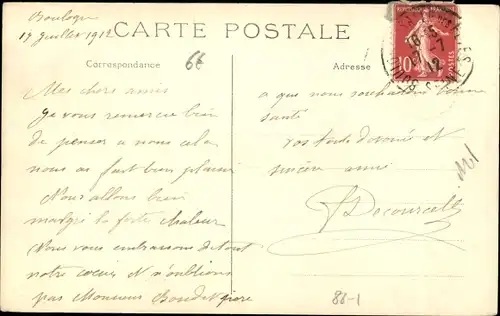 Boulogne
17 Juillet 1912
CARTE POSTALE
66
Correspondance
Adresse
Mes chers amis
Je vous remercie bien
de penser a nous cela
nous as fait bien plaisir
Nous allons bien
malgré la forte chaleur
Nous vous embrassons de tout
notre coeur et n'oublions
pas Monsieur
a que nous souhaitons bonne
santé
vos touts dévoués et
sincère amie
10
POSTES
12
88-1